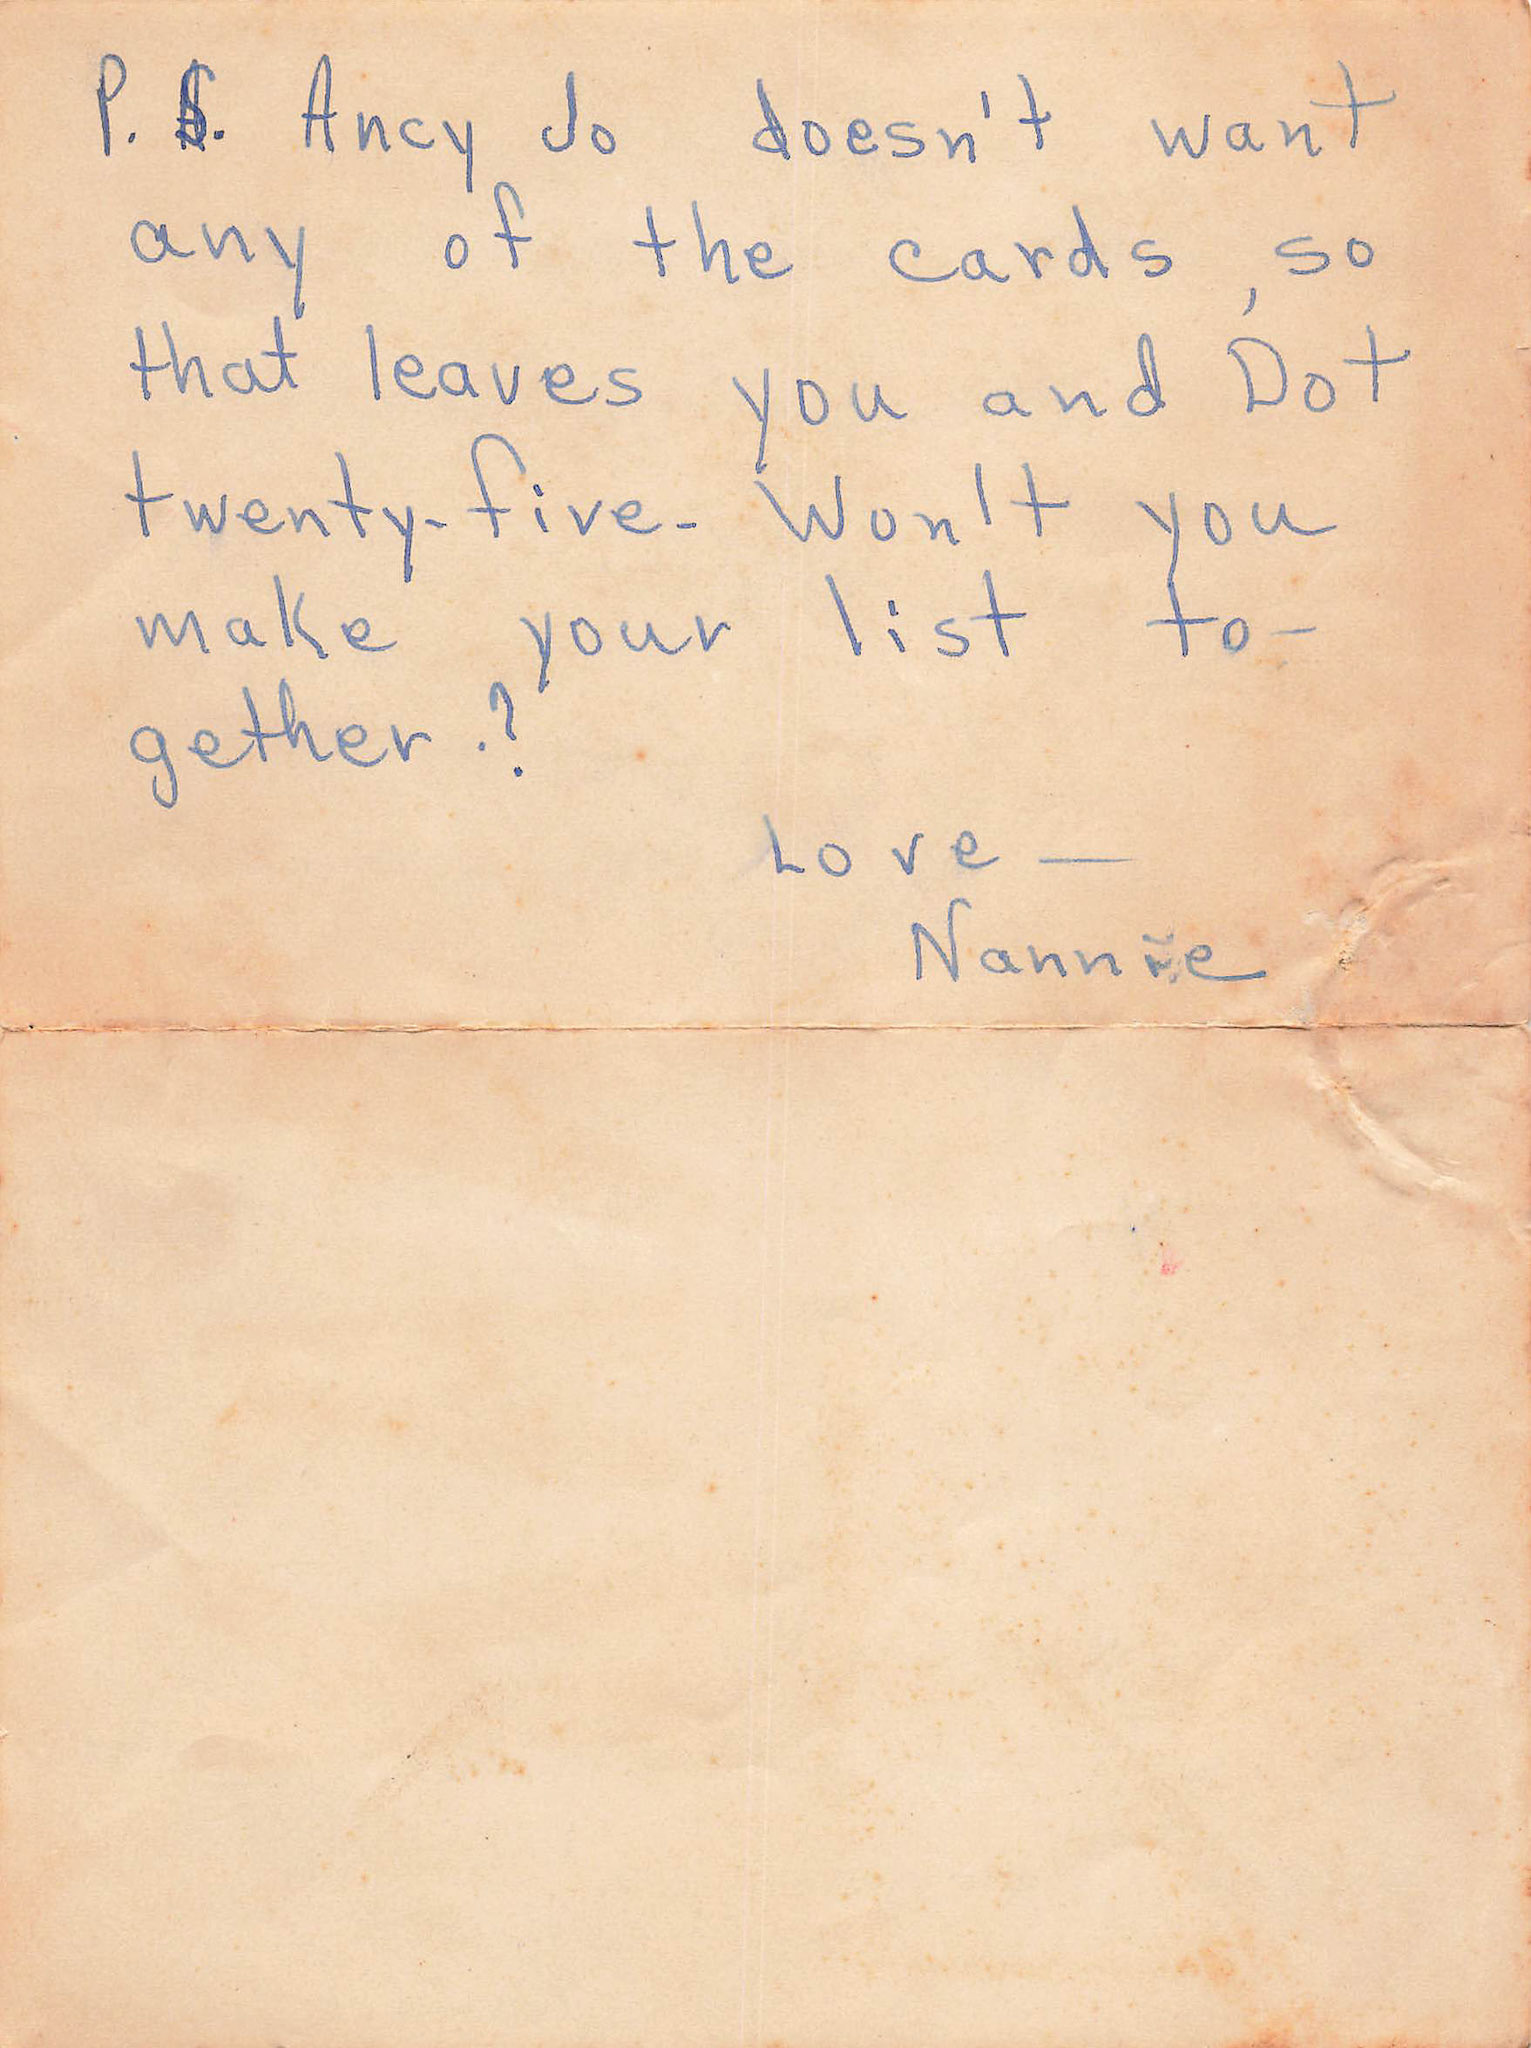 P.S. Ancy Jo doesn't want
any of the cards, so
that leaves you and Dot
twenty-five- Won't you
make your list to-
gether.?
Love —
Nannie